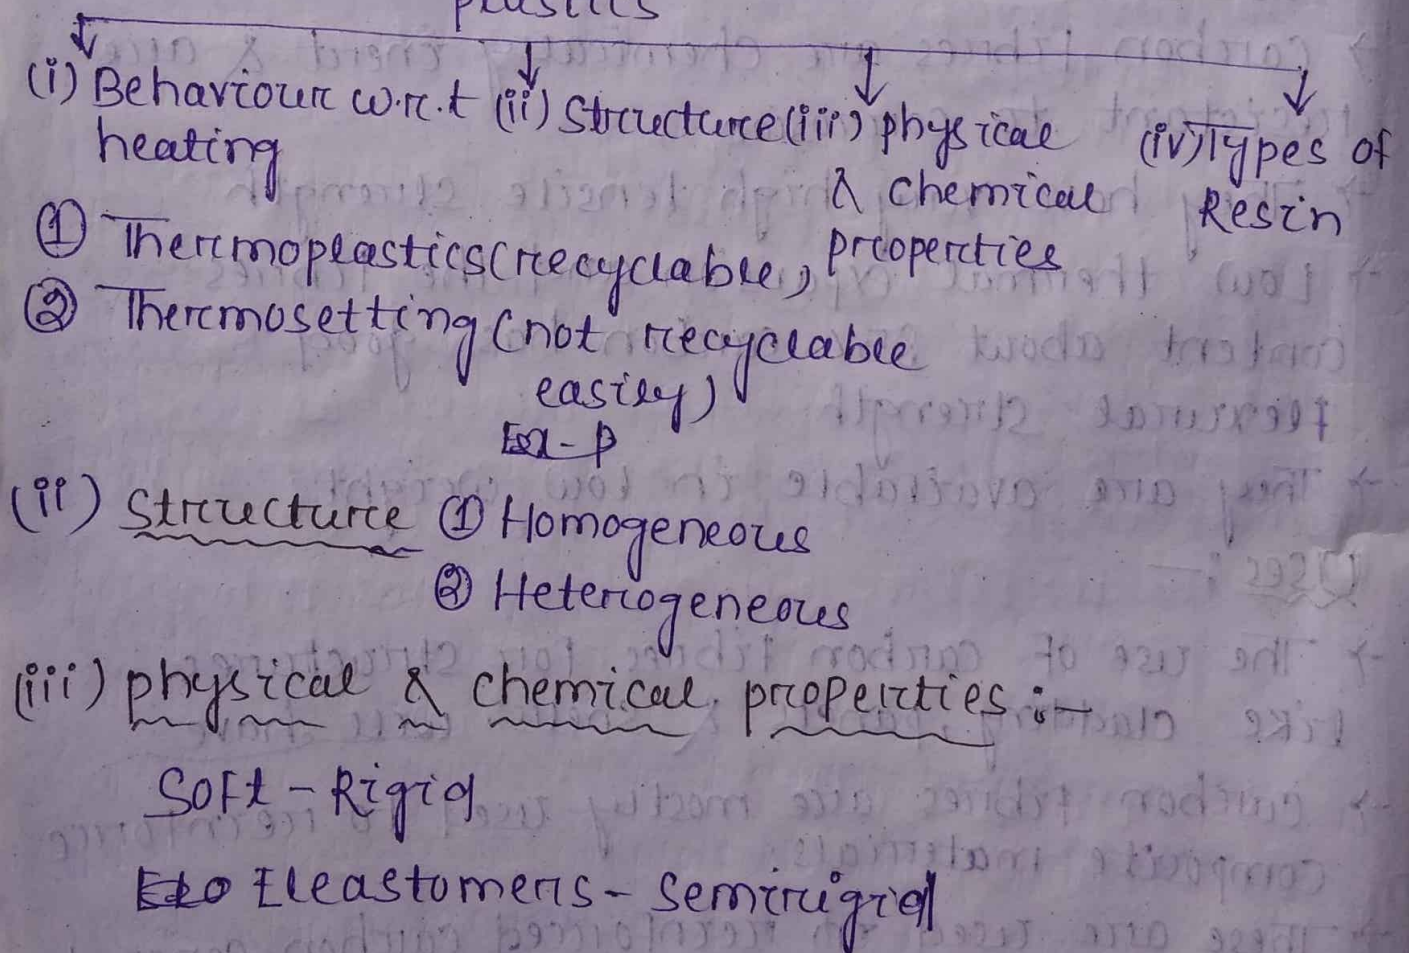 plastics
(i) Behaviour w.r.t (ii) Structure (iii) physical (iv) Types of
heating & chemical Resin
properties
① Thermoplastics (recyclable)
② Thermosetting (not recyclable
easily)
Ex - p
(ii) Structure ① Homogeneous
② Heterogeneous
(iii) physical & chemical properties :-
Soft - Rigid
Eleastomers - Semirigid